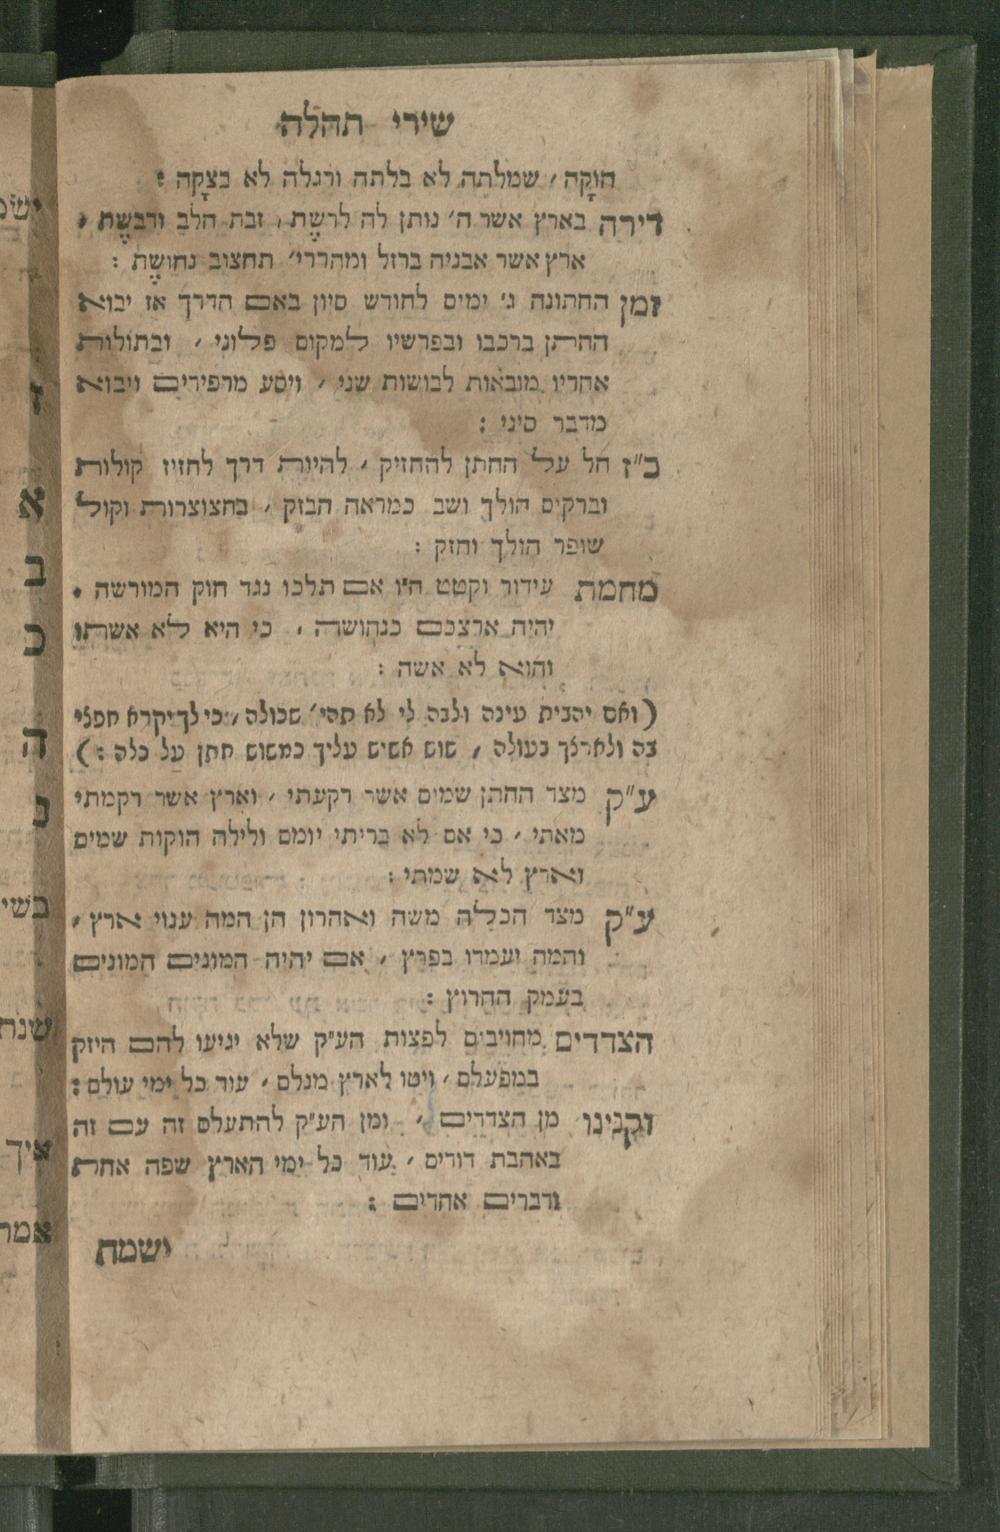 שירי תהלה
חוקה, שמלתה לא בלתה ורגלה לא בצקה :
דירה בארץ אשר ה' נותן לה לרשת, זבת חלב ודבשת,
ארץ אשר אבניה ברזל ומהררי' תחצוב נחושת :
זמן החתונה ג' ימים לחודש סיון באם הדרך אז יבוא
החתן ברכבו ובפרשיו למקום פלוני, ובתולות
אחריו מובאות לבושות שני, ויסע מרפידים ויבוא
מדבר סיני :
כ"ז חל על החתן להחזיק, להיות דרך לחזיז קולות
וברקים הולך ושב כמראה הבזק, בחצוצרות וקול
שופר הולך וחזק :
מחמת עידור וקטט ח"ו אם תלכו נגד חוק המורשה .
יהיה ארצכם כנחושה, כי היא לא אשתו
והוא לא אשה :
(ואם יהבית עינה ולבה לי לא תהי' שכולה, כי לך יקרא חפצי
בה ולארצך בעולה, שוש אשיש עליך כמשוש חתן על כלה :)
ע"ק מצד החתן שמים אשר רקעתי, וארץ אשר רקמתי
מאתי, כי אם לא בריתי יומם ולילה חוקות שמים
וארץ לא שמתי :
ע"ק מצד הכלה משה ואהרון הן המה ענוי ארץ,
והמה יעמדו בפרץ, אם יהיה המונים המונים
בעמק החרוץ :
הצדדים מחויבים לפצות הע"ק שלא יגיעו להם היזק
במפעלם, ויטו לארץ מנלם, עוד כל ימי עולם :
וקנינו מן הצדדים, ומן הע"ק להתעלס זה עם זה
באהבת דודים, עוד כל ימי הארץ שפה אחת
ודברים אחדים :
ישמח